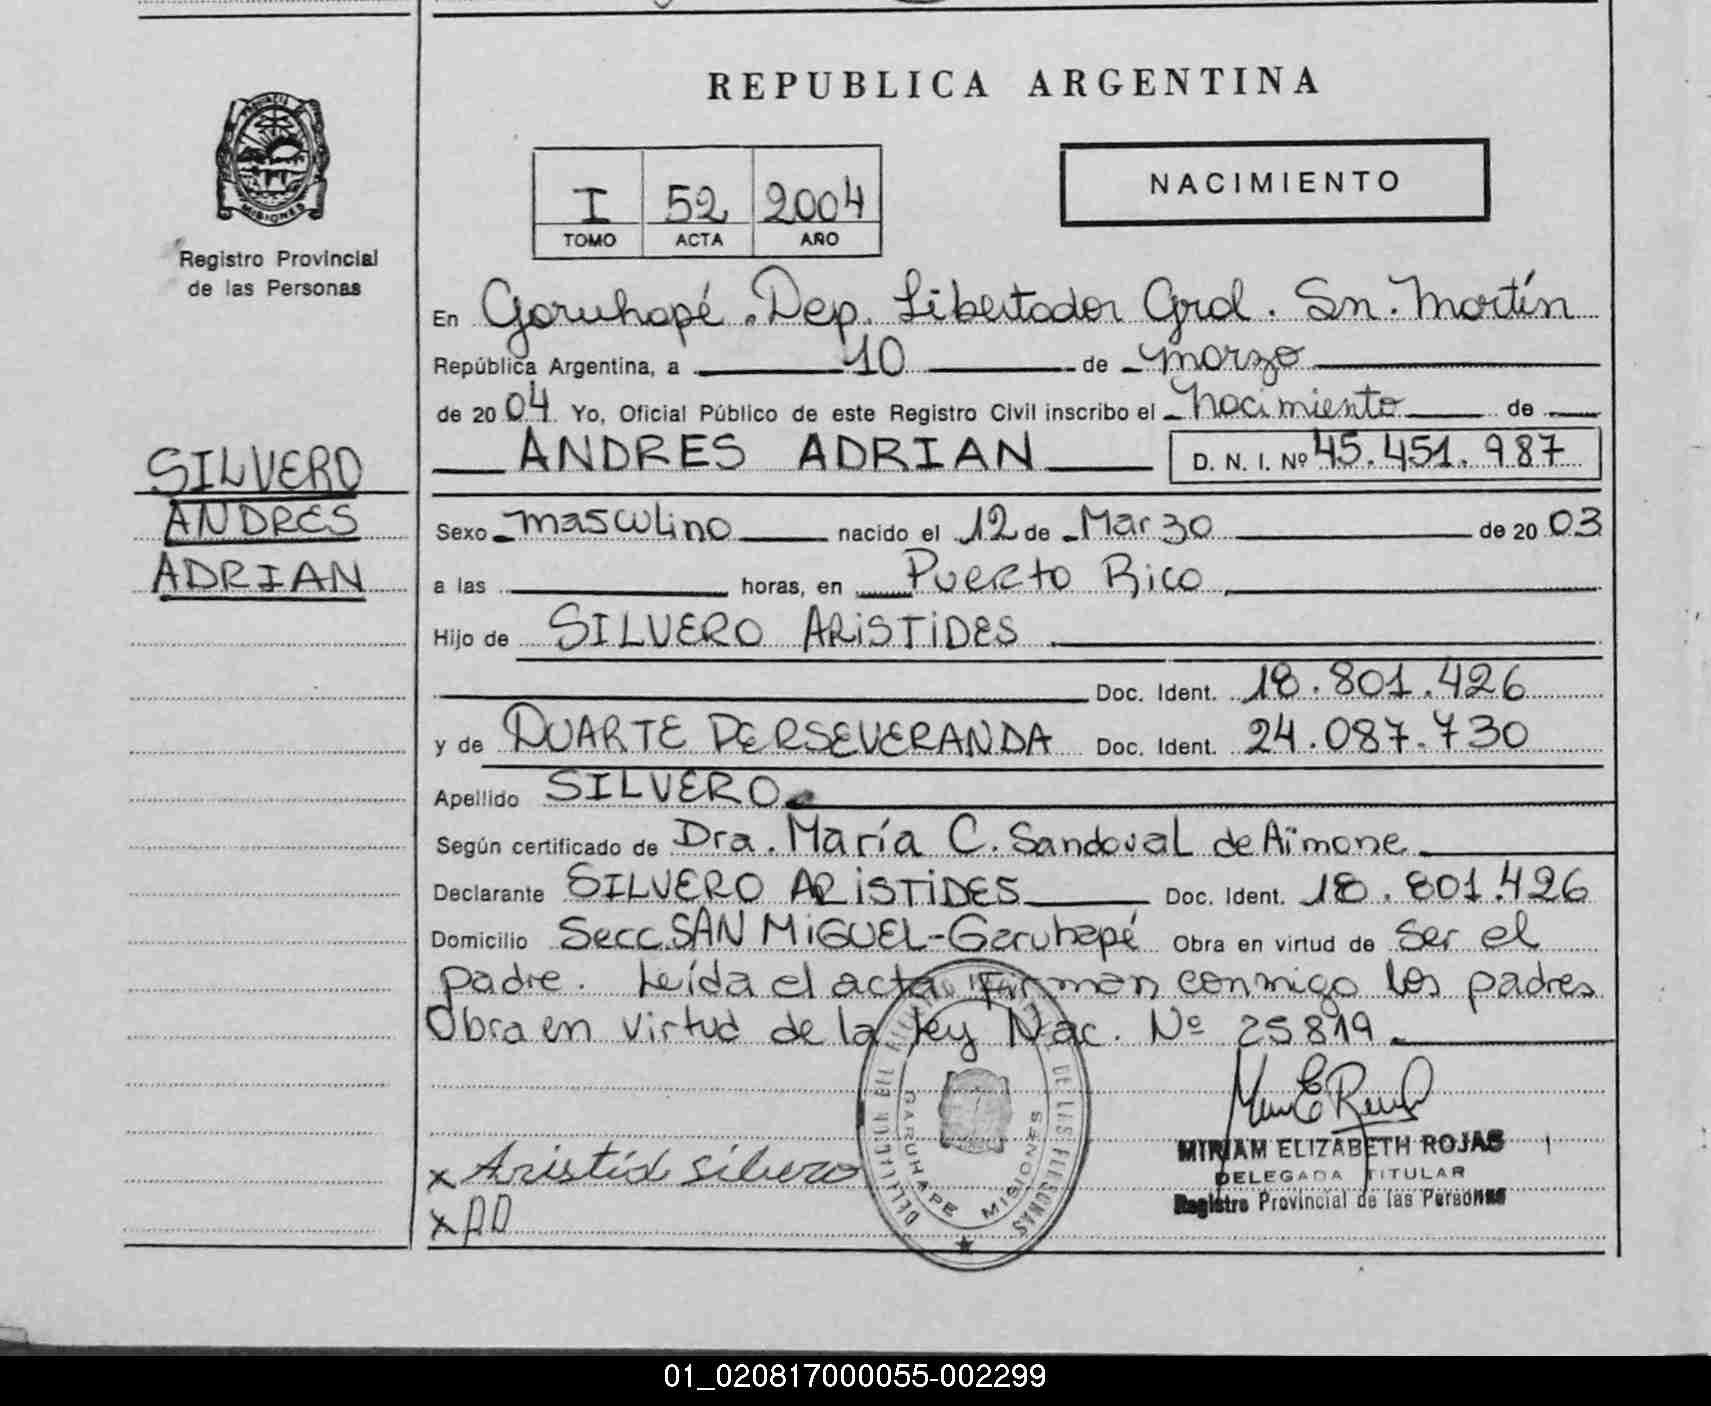 REPUBLICA ARGENTINA
PROVINCIA DE
MISIONES
Registro Provincial
de las Personas
NACIMIENTO
I 52 2004
TOMO ACTA AÑO
En Garuhapé. Dep. Libertador Gral. Sn. Martín
República Argentina, a 10 de marzo
de 2004 Yo, Oficial Público de este Registro Civil inscribo el Nacimiento de
ANDRES ADRIAN D. N. I. Nº 45.451.987
SILVERO
ANDRES
ADRIAN
Sexo masculino nacido el 12 de Marzo de 2003
a las horas, en Puerto Rico
Hijo de SILVERO ARISTIDES
Doc. Ident. 18.801.426
y de DUARTE PERSEVERANDA Doc. Ident. 24.087.730
Apellido SILVERO
Según certificado de Dra. María C. Sandoval de Aïmone
Declarante SILVERO ARISTIDES Doc. Ident. 18.801.426
Domicilio Secc. SAN MIGUEL-Garuhapé Obra en virtud de Ser el
padre. Leída el acta Firman conmigo los padres
Obra en virtud de la ley Nac. Nº 25819
x Aristid silvero
x PD
DELEGACION DEL REGISTRO DE LAS PERSONAS
GARUHAPE MISIONES
MIRIAM ELIZABETH ROJAS
DELEGADA TITULAR
Registro Provincial de las Personas
01_020817000055-002299